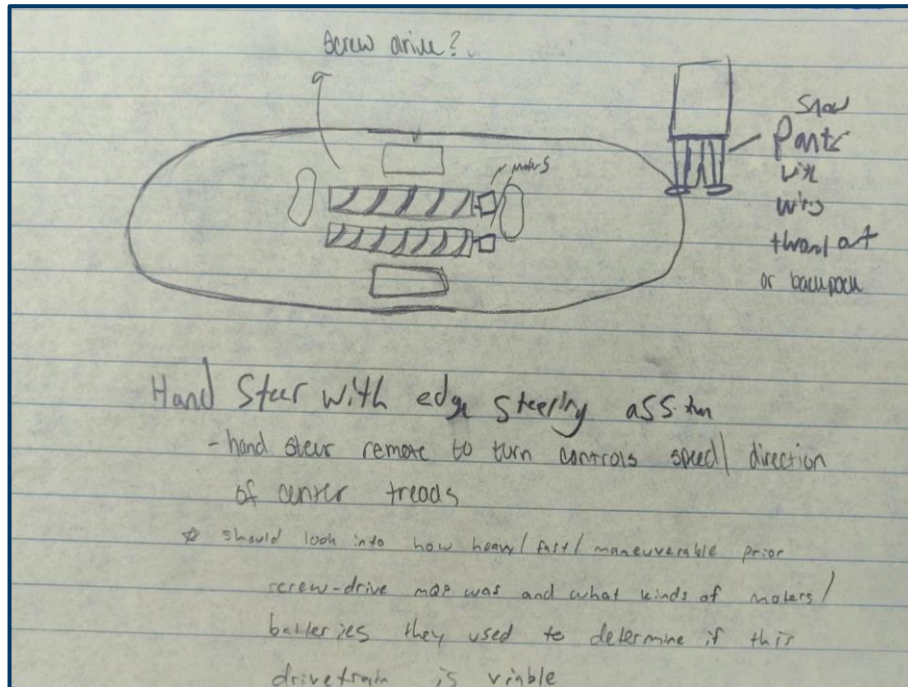 screw drive?
motors
Snow
Pants
with
wires
or backpack
Hand Steer with edge steering
-hand steer remote to turn controls speed/ direction
of center treads
* should look into how heavy/ fast/ maneuverable prior
screw-drive MQP was and what kinds of motors/
batteries they used to determine if this
drivetrain is viable